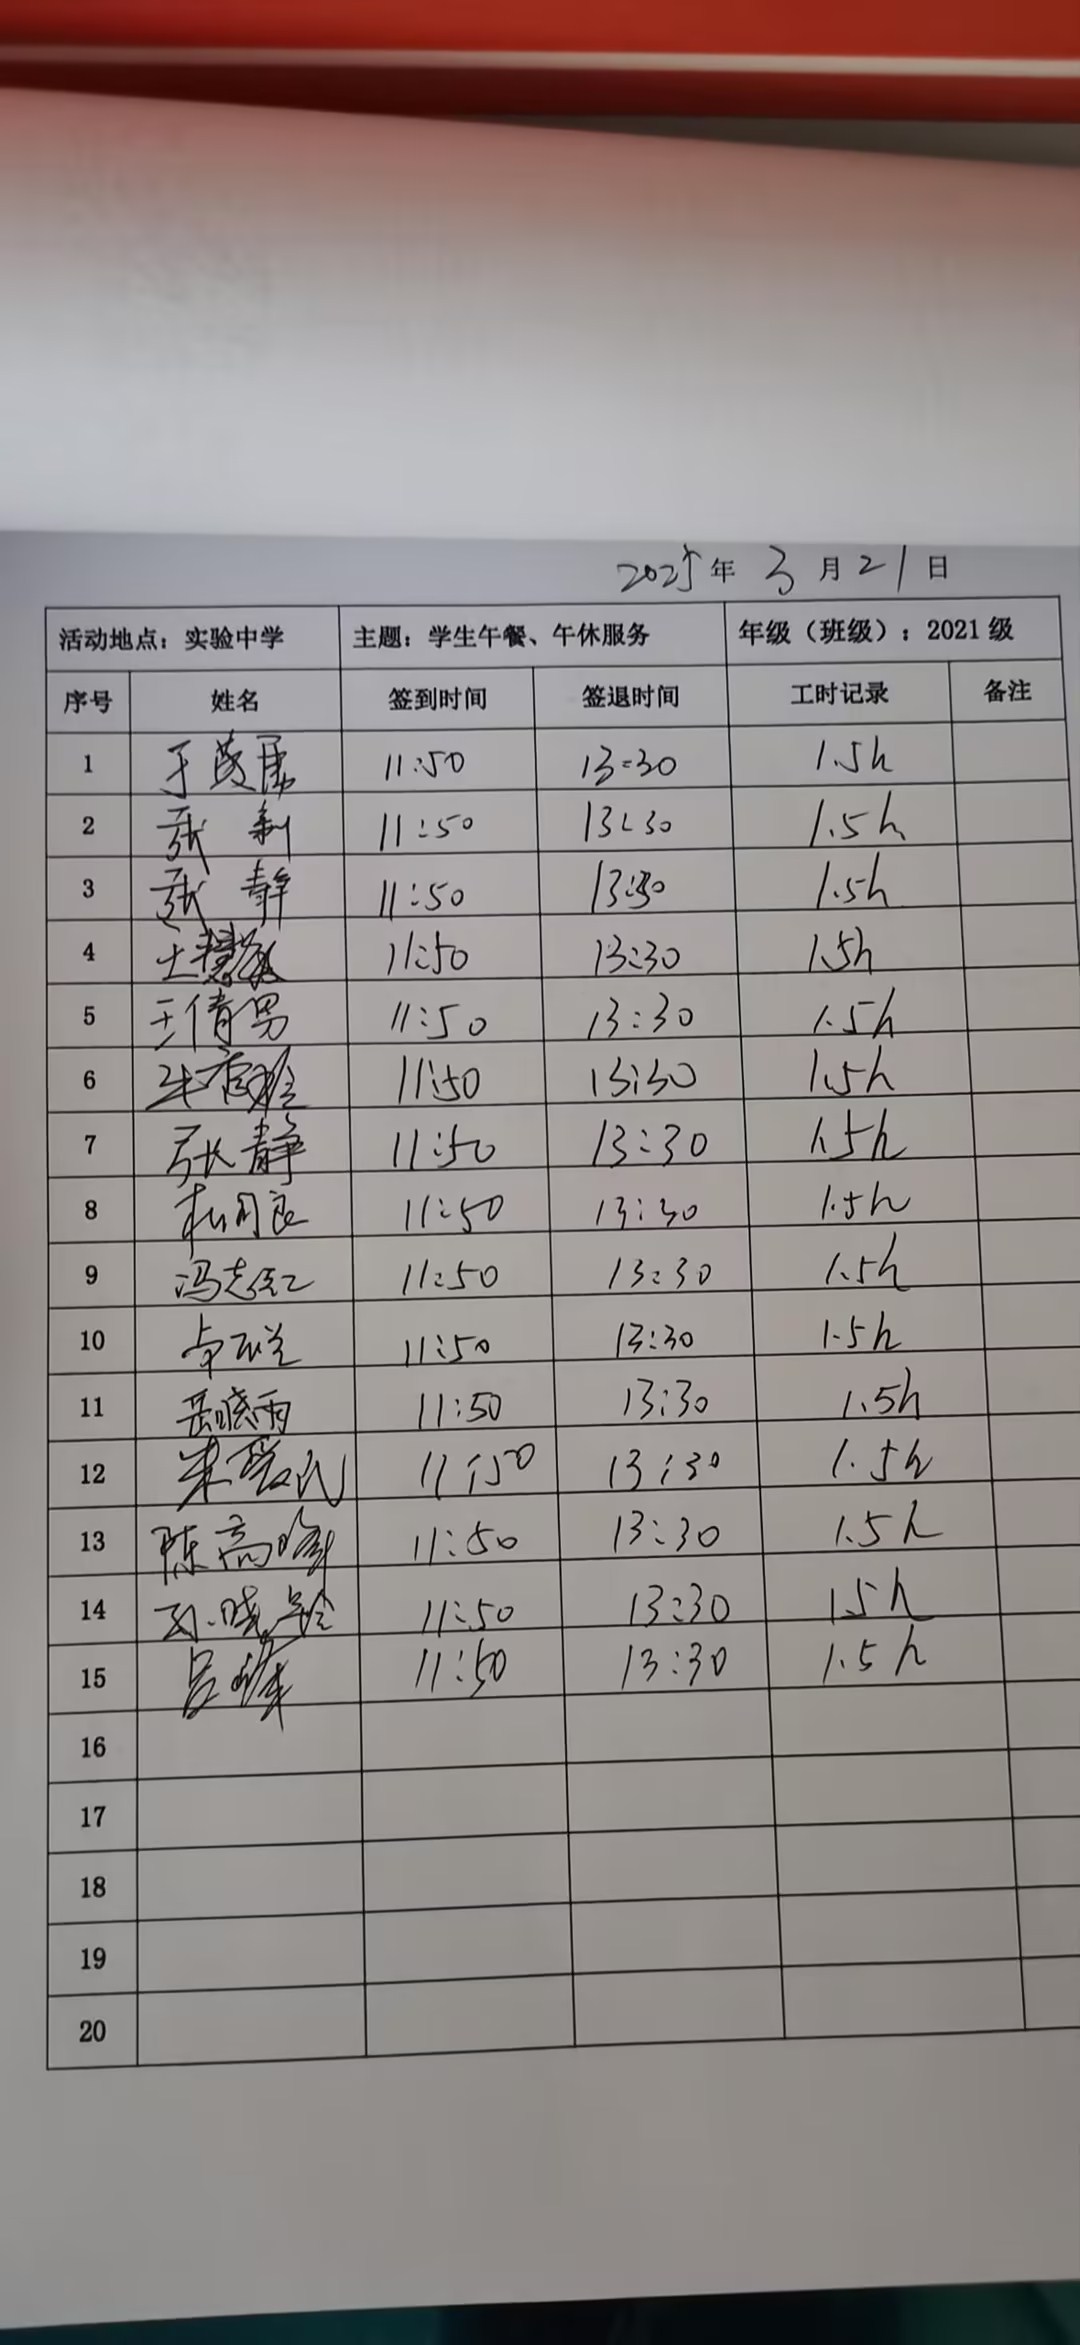 2025年 3月21日
活动地点：实验中学 主题：学生午餐、午休服务 年级（班级）：2021级
序号 姓名 签到时间 签退时间 工时记录 备注
1 11:50 13:30 1.5h
2 张利 11:50 13:30 1.5h
3 张静 11:50 13:30 1.5h
4 11:50 13:30 1.5h
5 王倩男 11:50 13:30 1.5h
6 11:50 13:30 1.5h
7 张静 11:50 13:30 1.5h
8 11:50 13:30 1.5h
9 冯志红 11:50 13:30 1.5h
10 11:50 13:30 1.5h
11 岳晓雨 11:50 13:30 1.5h
12 朱爱民 11:50 13:30 1.5h
13 陈高峰 11:50 13:30 1.5h
14 孙晓玲 11:50 13:30 1.5h
15 吕峰 11:50 13:30 1.5h
16
17
18
19
20